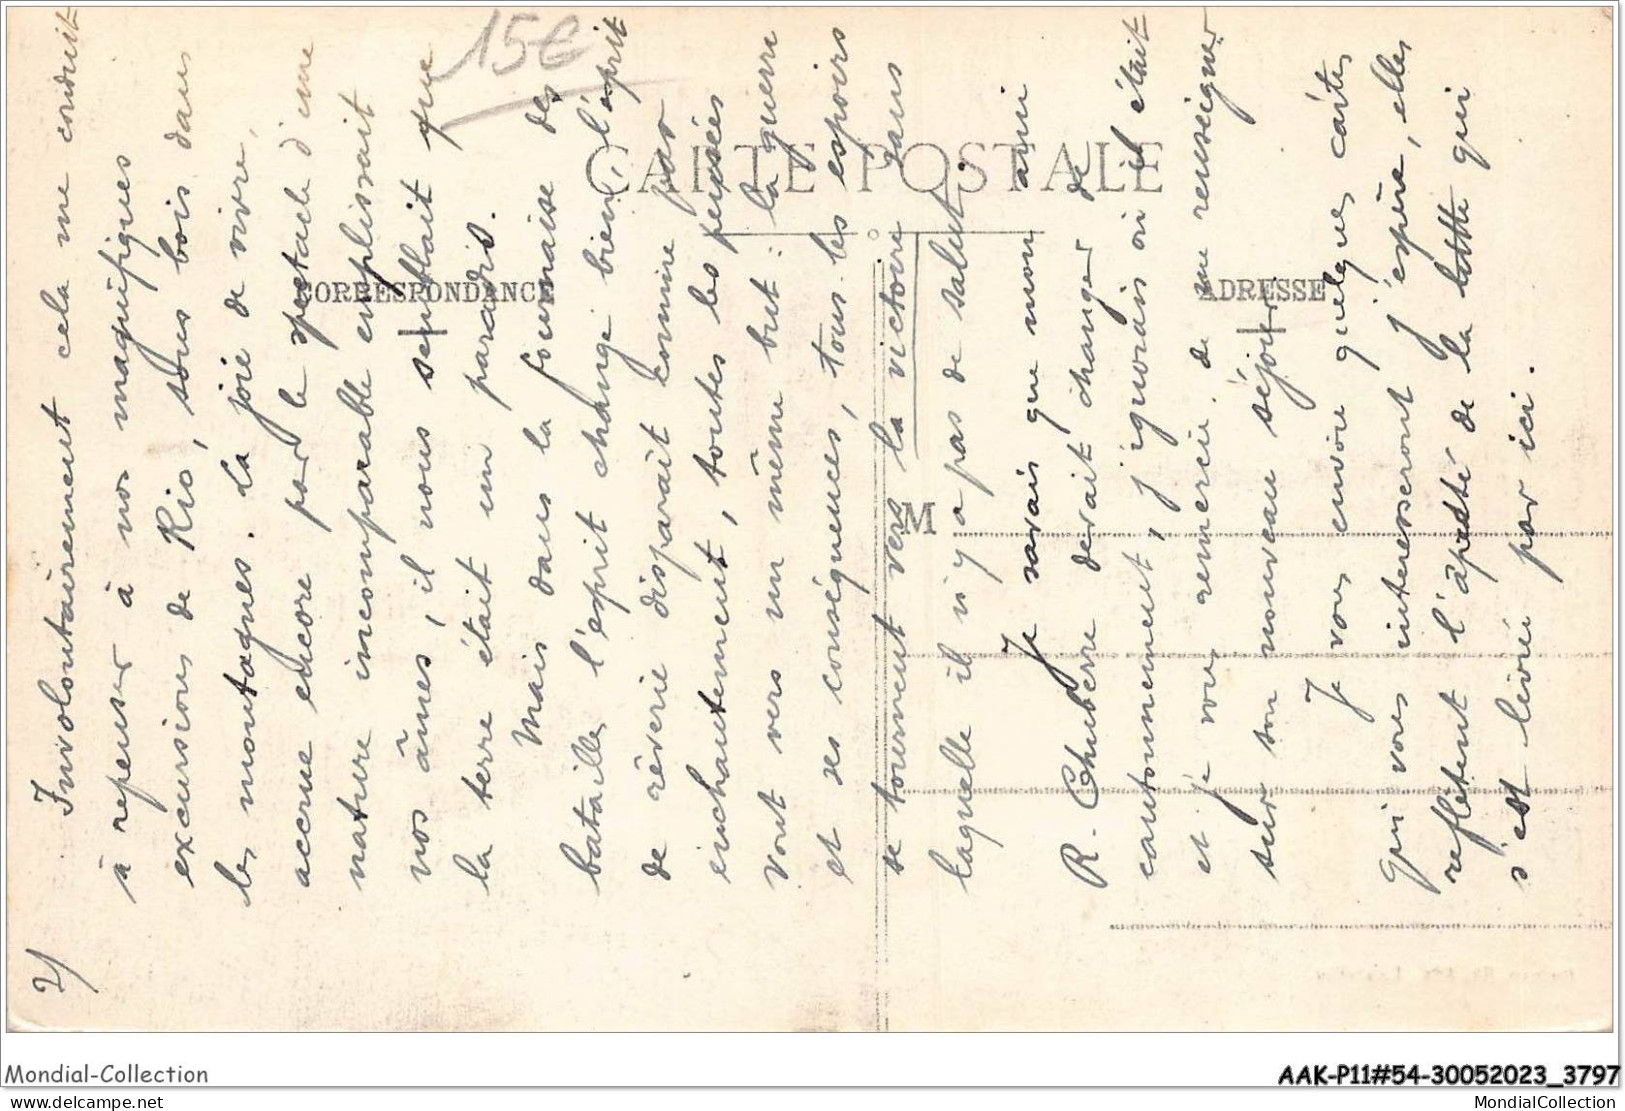 15€
CARTE POSTALE
CORRESPONDANCE
ADRESSE
M
2/
Involontairement cela me conduit
à repenser à nos magnifiques
excursions de Rio, sous bois dans
les montagnes. La joie de vivre,
accrue encore par le spectacle d'une
nature incomparable emplissait
nos âmes, il nous semblait que
la terre était un paradis.
Mais dans la fournaise des
batailles l'esprit change bien, l'esprit
de rêverie disparaît comme par
enchantement, toutes les pensées
vont vers un même but : la guerre
et ses conséquences, tous les espoirs
se tournent vers la victoire sans
laquelle il n'y a pas de salut.
Je savais que mon ami
R. Chuberre devait changer de
cantonnement, j'ignorais où il était
et je vous remercie de me renseigner
sur son nouveau séjour.
Je vous envoie quelques cartes
qui vous interesseront j'espère, elles
reflètent l'apreté de la lutte qui
s'est livrée par ici.
Mondial-Collection
AAK-P11#54-30052023_3797
www.mondialcollection.net
MondialCollection